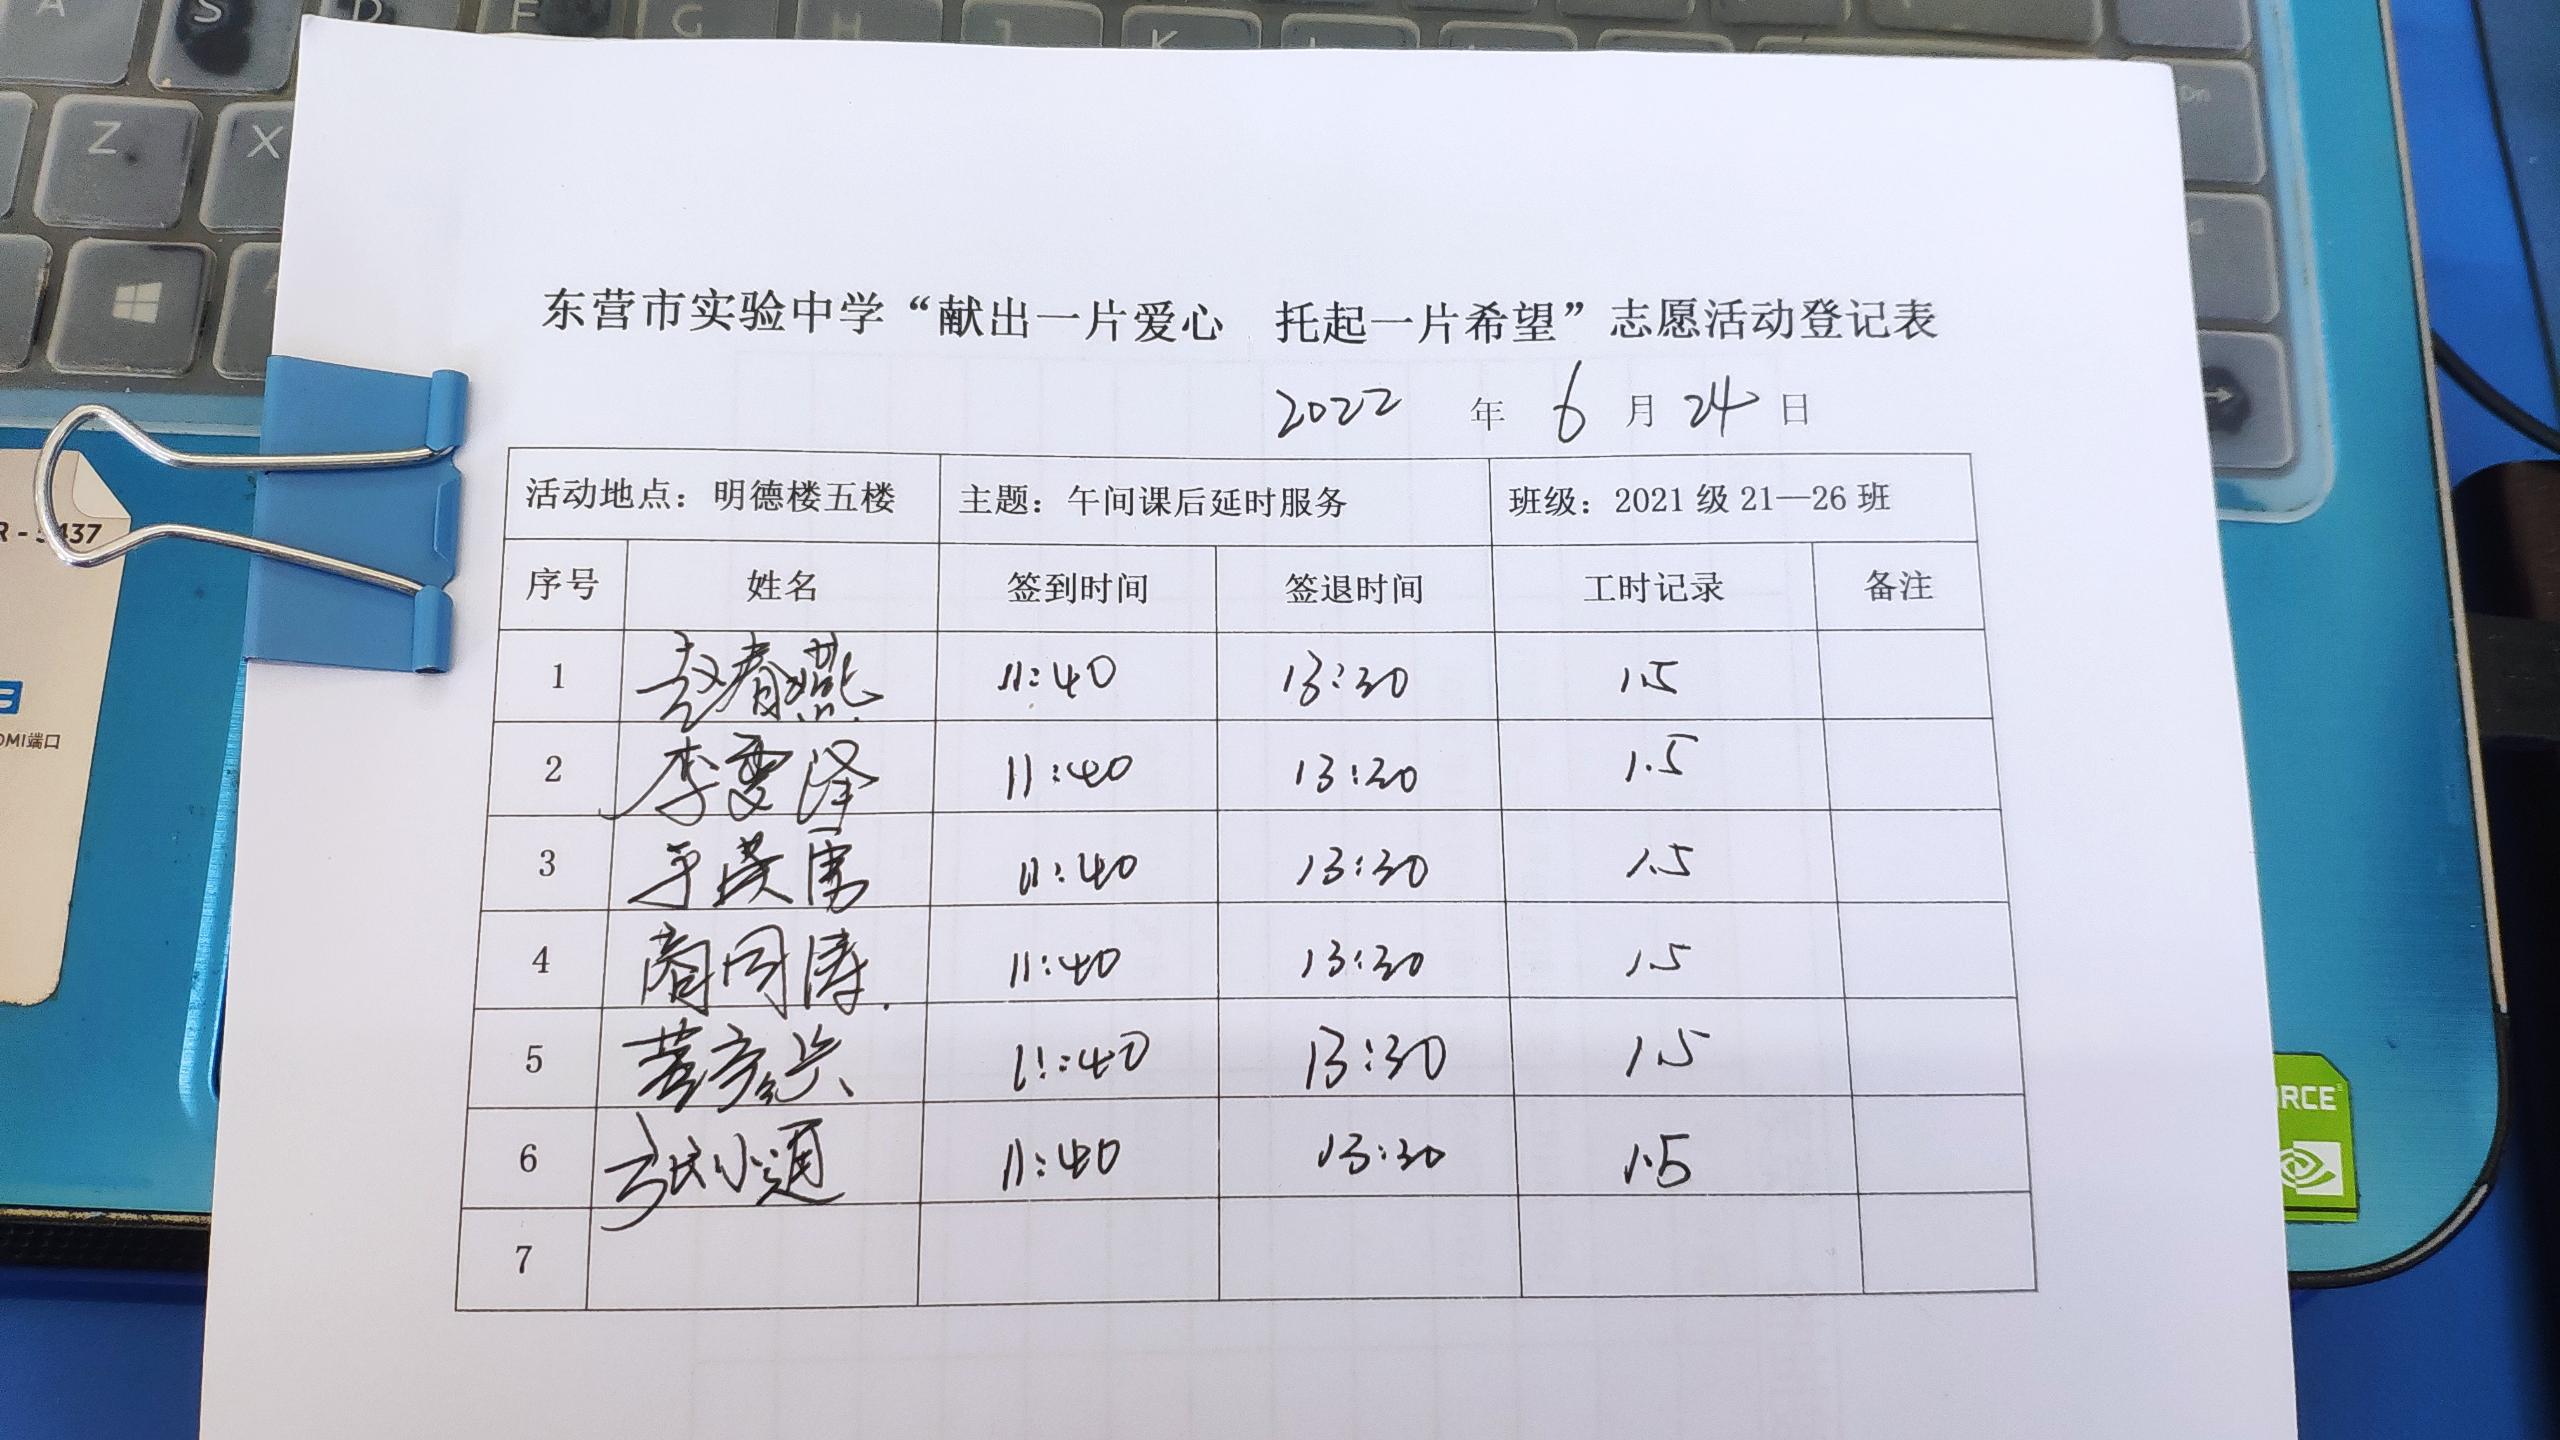 A S D F G H J K L
Z X
东营市实验中学“献出一片爱心 托起一片希望”志愿活动登记表
2022 年 6 月 24 日
活动地点：明德楼五楼 主题：午间课后延时服务 班级：2021级21—26班
序号 姓名 签到时间 签退时间 工时记录 备注
1 赵春燕 11:40 13:30 1.5
2 李雯泽 11:40 13:30 1.5
3 11:40 13:30 1.5
4 商同涛 11:40 13:30 1.5
5 11:40 13:30 1.5
6 张小通 11:40 13:30 1.5
7
437
DMI端口
RCE